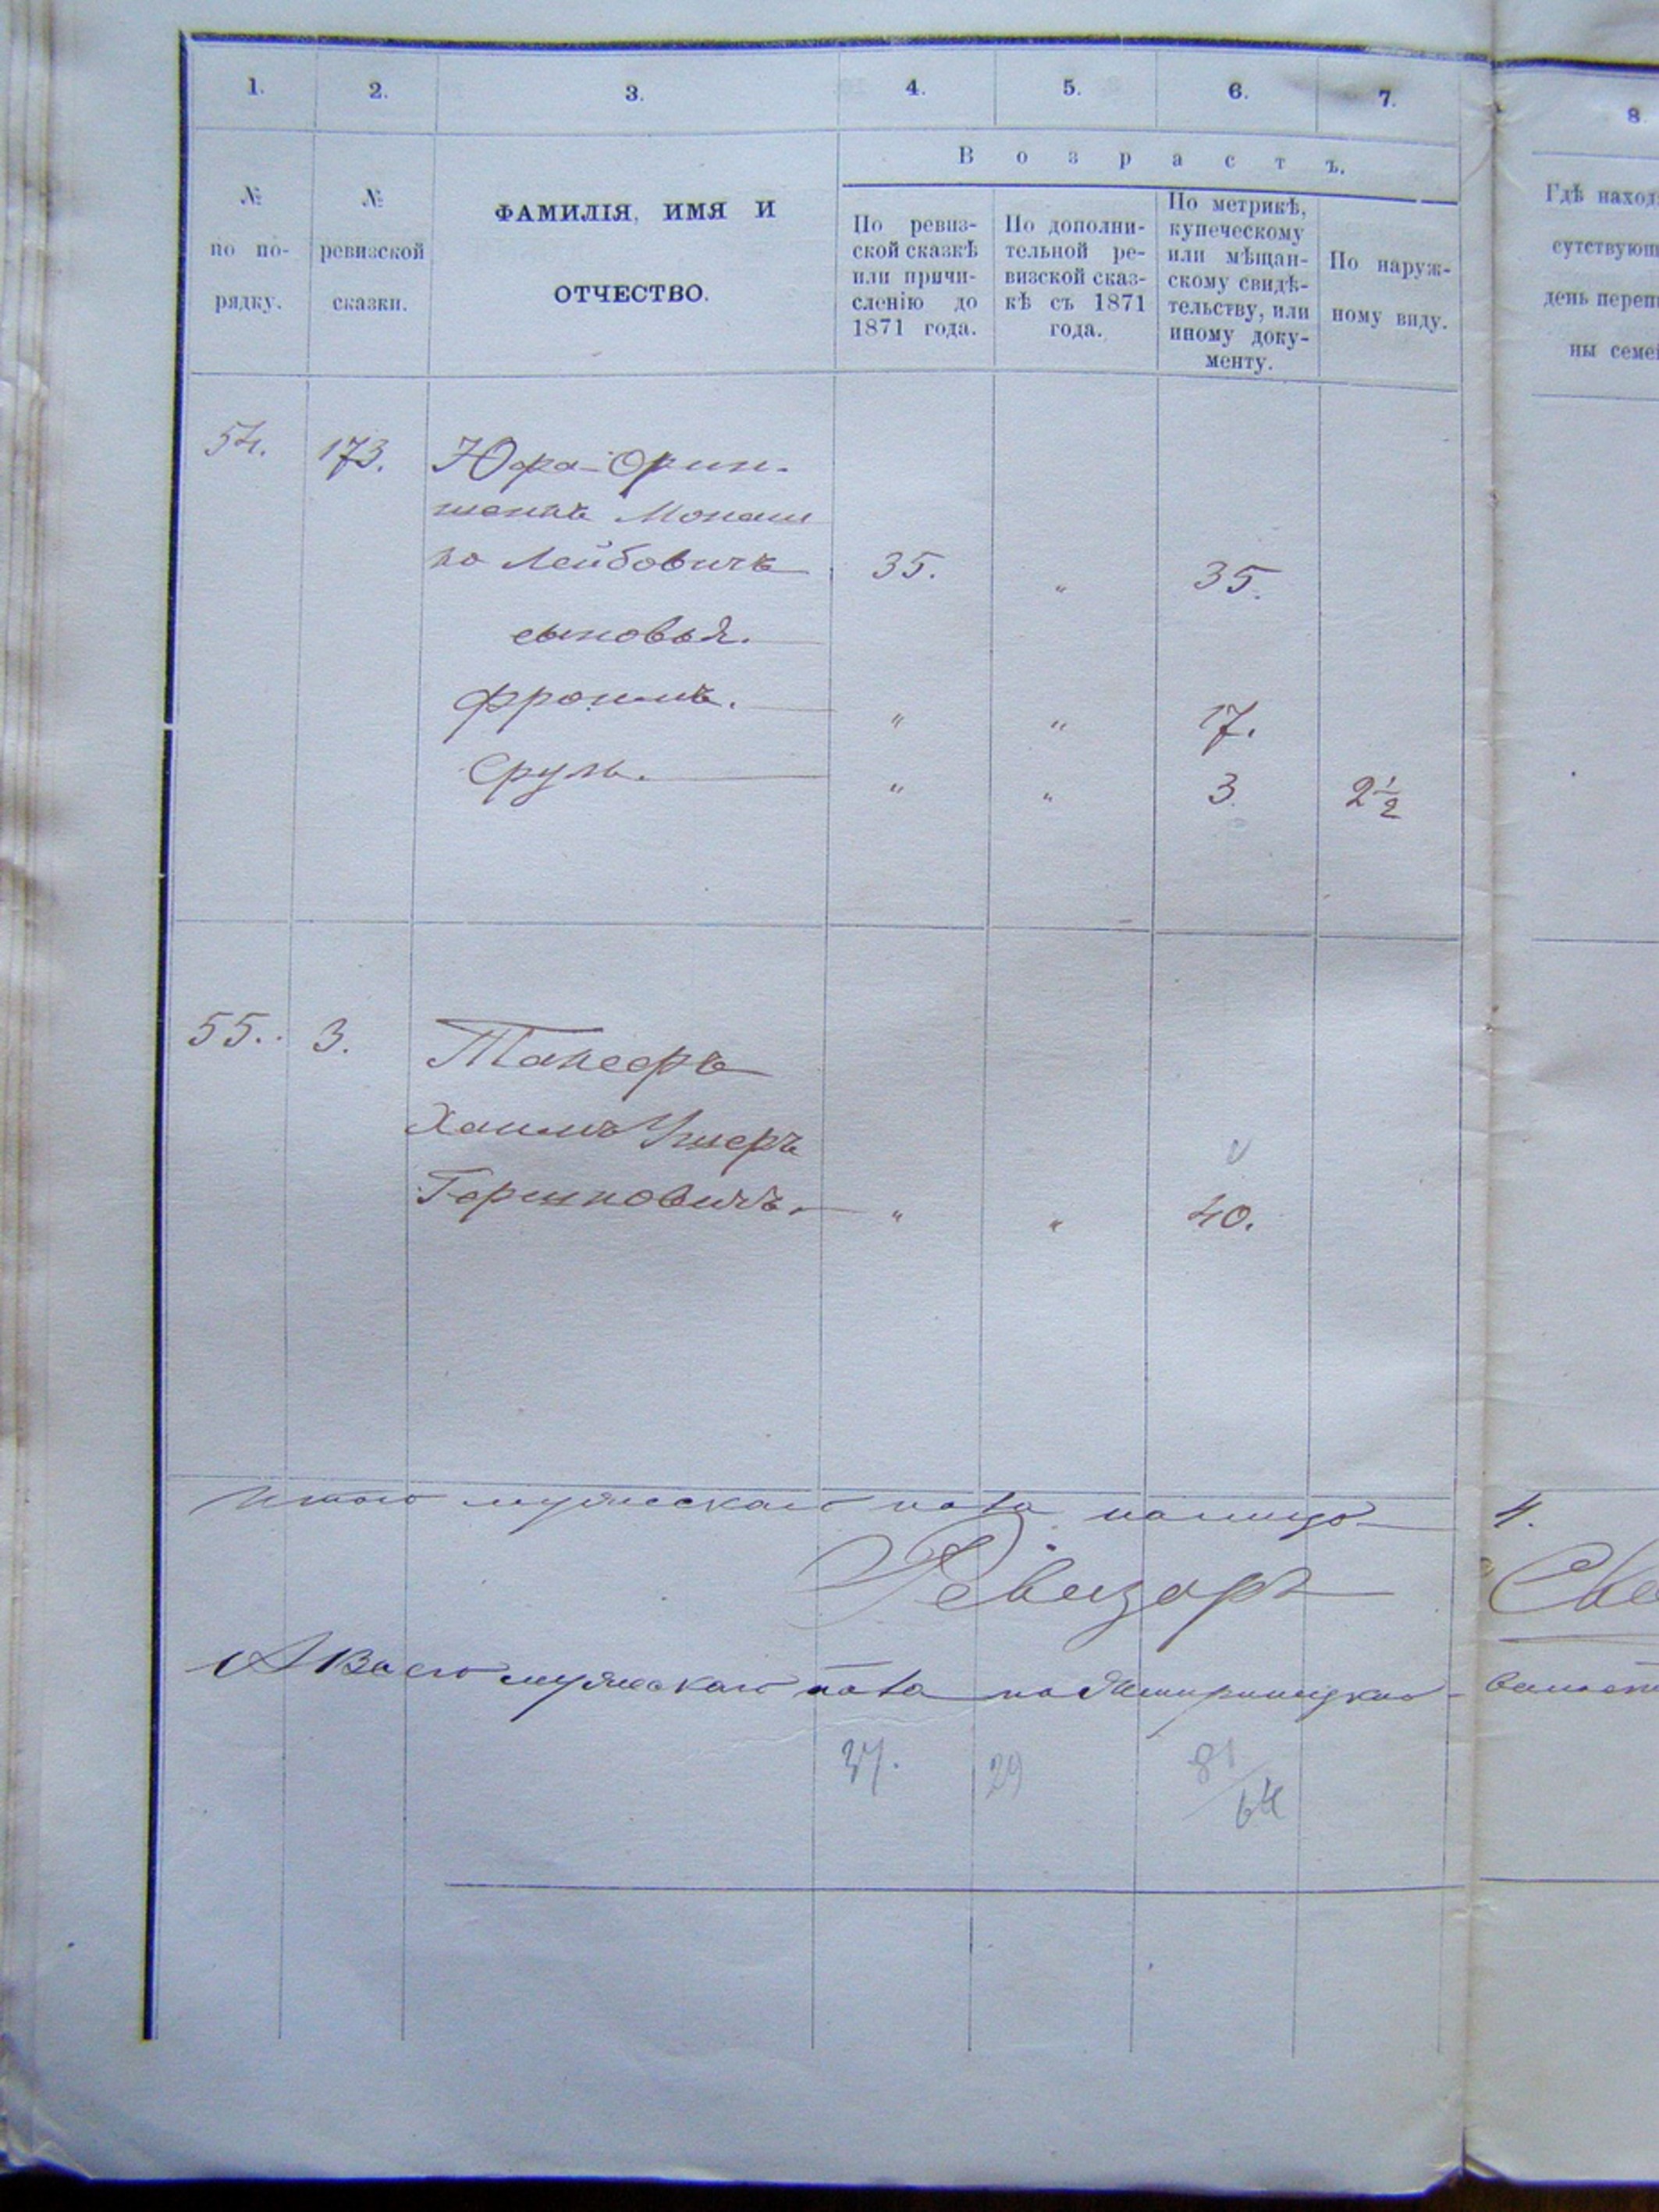 1. 2. 3. 4. 5. 6. 7.
8.
В о з р а с т ъ.
№
по по-
рядку.
№
ревизской
сказки.
ФАМИЛІЯ, ИМЯ И
ОТЧЕСТВО.
По ревиз-
ской сказкѣ
или причи-
сленію до
1871 года.
По дополни-
тельной ре-
визской сказ-
кѣ съ 1871
года.
По метрикѣ,
купеческому
или мѣщан-
скому свидѣ-
тельству, или
иному доку-
менту.
По наруж-
ному виду.
Гдѣ наход
сутствующ
день переп
ны семе
54. 173. Юфа-Орин-
штейнъ Монаш
ко Лейбовичъ 35. " 35.
сыновья.
Фроимъ. " " 17.
Сруль. " " 3. 2½
55. 3. Танееръ
Хаимъ Ушеръ
Гершковичъ. " " 40.
Итого мужескаго пола налицо 4.
Ревизоръ
А Всего мужескаго пола по
37. 29 81/64